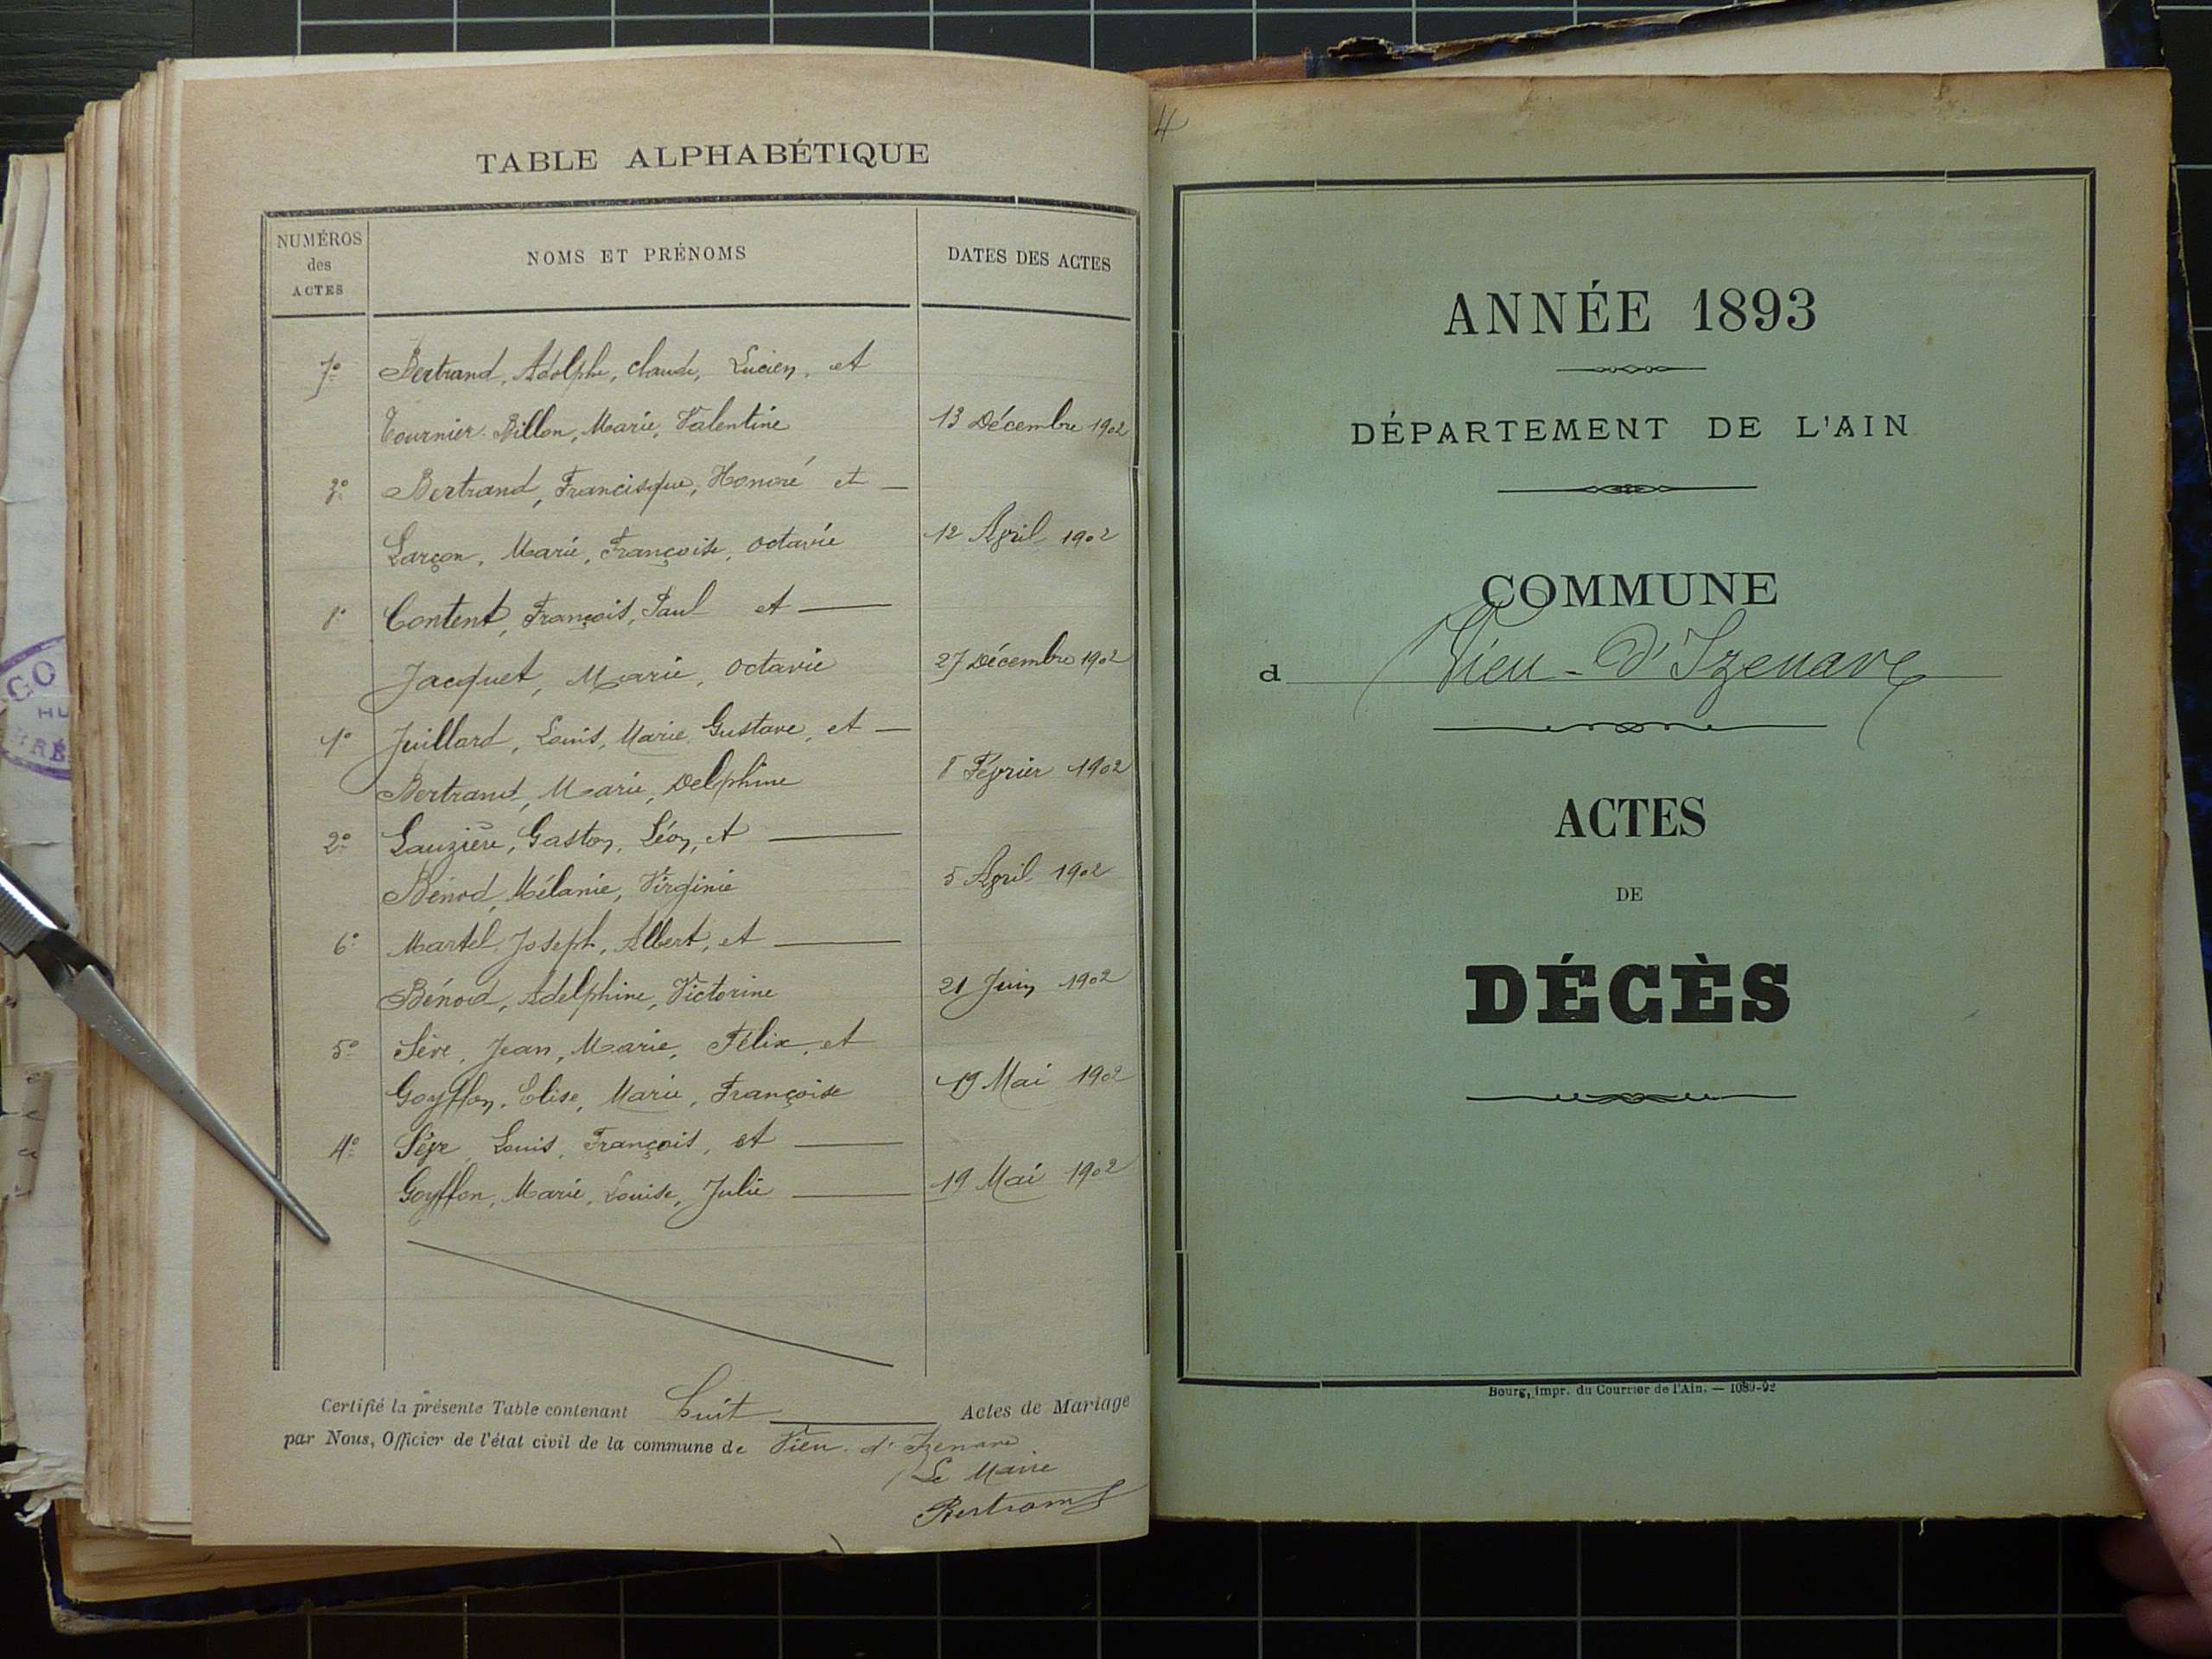 TABLE ALPHABÉTIQUE
NUMÉROS
des
ACTES
NOMS ET PRÉNOMS
DATES DES ACTES
7° Bertrand, Adolphe, Claude, Lucien, et
Tournier-Billon, Marie, Valentine 13 Décembre 1902
3° Bertrand, Francisque, Honoré et —
Larçon, Marie, Françoise, Octavie 12 Avril 1902
8° Content, François, Paul et —
Jacquet, Marie, Octavie 27 Décembre 1902
1° Juillard, Louis, Marie, Gustave, et —
Bertrand, Marie, Delphine 8 Février 1902
2° Lauzière, Gaston, Léon, et —
Bénod, Mélanie, Virginie 5 Avril 1902
6° Martel, Joseph, Albert, et —
Bénod, Adelphine, Victorine 21 Juin 1902
5° Sève, Jean, Marie, Félix, et
Goyffon, Elise, Marie, Françoise 19 Mai 1902
4° Sève, Louis, François, et —
Goyffon, Marie, Louise, Julie — 19 Mai 1902
Certifié la présente Table contenant huit Actes de Mariage
par Nous, Officier de l'état civil de la commune de Vieu-d'Izenave
Le Maire
Bertrand
4
ANNÉE 1893
DÉPARTEMENT DE L'AIN
COMMUNE
d Vieu-d'Izenave
ACTES
DE
DÉCÈS
Bourg, impr. du Courrier de l'Ain. — 1089-92